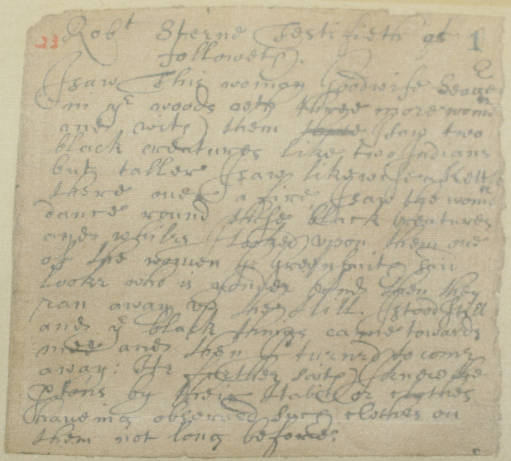 23 Robt Sterne Testifieth as 1
followeth.
I saw this woman goodwife Seager
in ye woods wth three more women
and with them I saw two
black creatures like two Indians
but taller I saw likewise a kettle
there over a fire I saw the women
dance round these black creatures
and whiles I looked upon them one
of the women G: Greensmith said
looke who is yonder and then they
ran away up the hill. I stood still
and ye black things came towards
mee and then I turned to come
away: He further saith I knew the
psons by their habits or clothes
haveing observed such clothes on
them not long before.